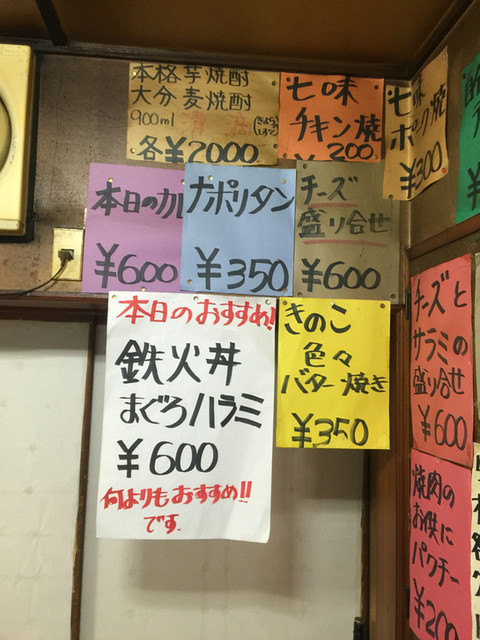 本格芋焼酎
大分麦焼酎
900ml
各¥2000
七味
チキン焼
200
七味
ポーク焼
¥300
本日のカル
¥600
ナポリタン
¥350
チーズ
盛り合せ
¥600
本日のおすすめ!
鉄火丼
まぐろハラミ
¥600
何よりもおすすめ!!
です.
きのこ
色々
バター焼き
¥350
チーズと
サラミの
盛り合せ
¥600
焼肉の
お供に
パクチー
¥200